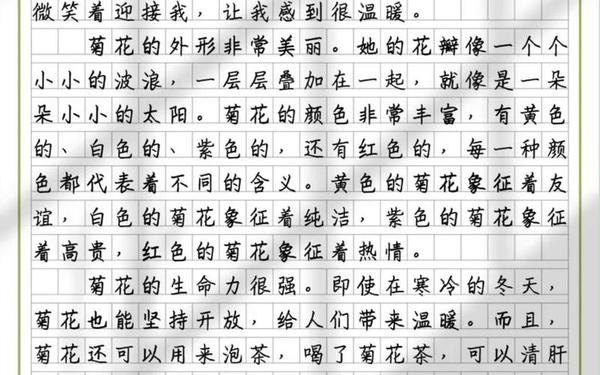 微笑着迎接我，让我感到很温暖。
菊花的外形非常美丽。她的花瓣像一个个
小小的波浪，一层层叠加在一起，就像是一朵
朵小小的太阳。菊花的颜色非常丰富，有黄色
的、白色的、紫色的，还有红色的，每一种颜
色都代表着不同的含义。黄色的菊花象征着友
谊，白色的菊花象征着纯洁，紫色的菊花象征
着高贵，红色的菊花象征着热情。
菊花的生命力很强。即使在寒冷的冬天，
菊花也能坚持开放，给人们带来温暖。而且，
菊花还可以用来泡茶，喝了菊花茶，可以清肝